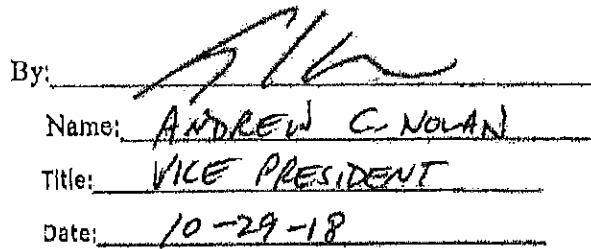 By:
Name: ANDREW C. NOLAN
Title: VICE PRESIDENT
Date: 10-29-18